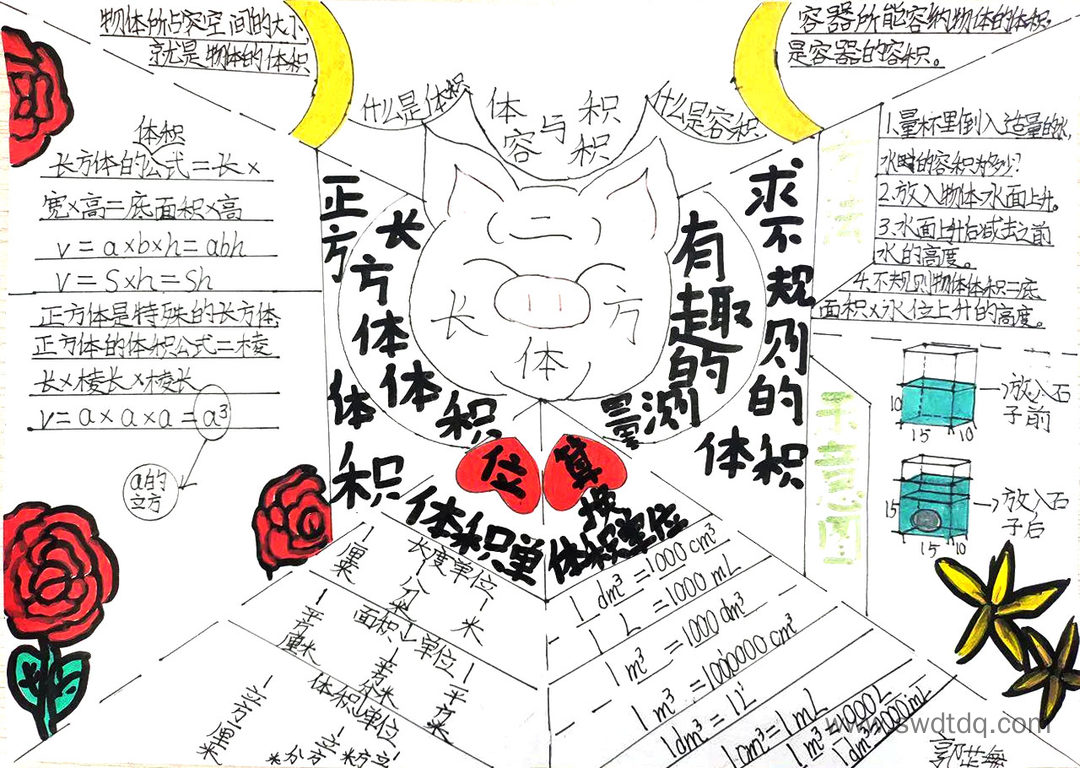 物体所占容空间的大小
就是物体的体积
容器所能容纳物体的体积
是容器的容积。
什么是体积
体 积
容与积
什么是容积
体积
长方体的公式=长×
宽×高=底面积×高
v=a×b×h=abh
v=S×h=Sh
正方体是特殊的长方体,
正方体的体积公式=棱
长×棱长×棱长
v=a×a×a=a³
a的
立方
正方体积
长方体体积
长方
体
有趣的测量
求不规则的体积
1.量杯里倒入适量的水,
水时的容积为多少?
2.放入物体水面上升。
3.水面上升后减去之前
水的高度。
4.不规则物体体积=底
面积×水位上升的高度。
示意图
10
15
10
放入石
子前
15
15
10
放入石
子后
体积单位
换算体积单位
长度单位
1厘米
1分米
1米
面积单位
1平方厘米
1平方分米
1平方米
体积单位
1立方厘米
1立方分米
1立方米
1dm³=1000cm³
1L=1000mL
1m³=1000dm³
1m³=1000000cm³
1dm³=1L
1cm³=1mL
1m³=1000L
1dm³=1000mL
www.swdtdq.com